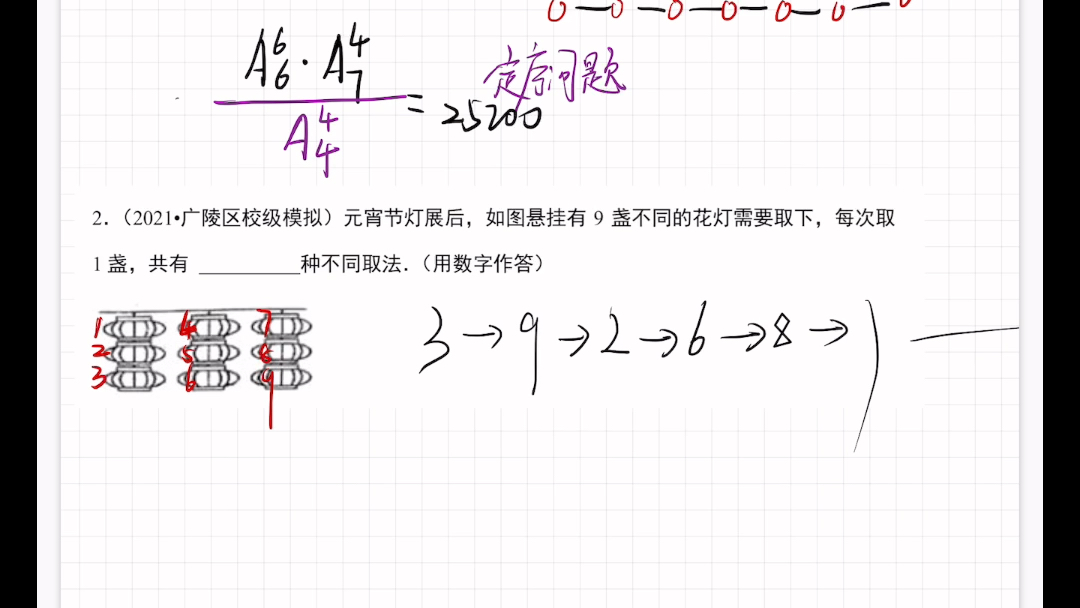 0—0—0—0—0—0—0
A⁶₆·A⁴₇ / A⁴₄ = 25200 定序问题
2.（2021•广陵区校级模拟）元宵节灯展后，如图悬挂有 9 盏不同的花灯需要取下，每次取
1 盏，共有 ________种不同取法.（用数字作答）
1 4 7
2 5 8
3 6 9
3→9→2→6→8→1—